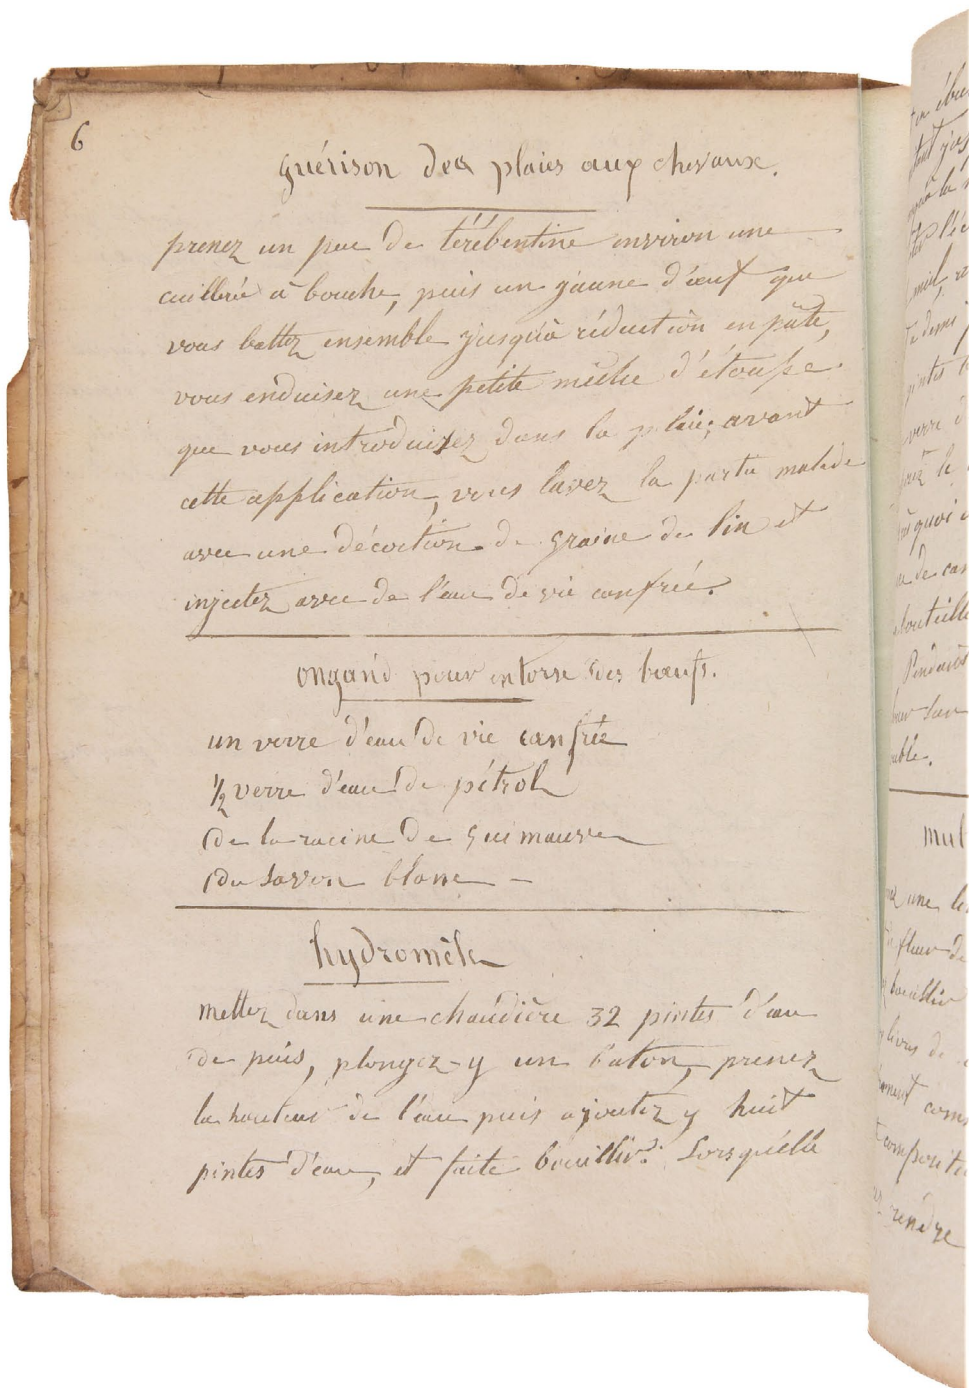 6
guérison des plaies aux chevaux.
prenez un peu de térébentine environ une
cuillerée à bouche, puis un jaune d'œuf que
vous battez ensemble jusqu'à réduction en pâte,
vous enduisez une petite mèche d'étouppe
que vous introduisez dans la plaie; avant
cette application, vous lavez la partie malade
avec une décoction de graine de lin et
injectez avec de l'eau de vie canfrée.
ongand pour entorse des bœufs.
un verre d'eau de vie canfrée
1/2 verre d'eau de pétrol
de la racine de guimauve
du savon blanc –
hydromèle
mettez dans une chaudière 32 pintes d'eau
de puis, plongez-y un baton, prenez
la hauteur de l'eau puis ajoutez y huit
pintes d'eau, et faite bouillir. Lorsqu'elle
verre d
quoi
de can
bouteille
mul
une
fleur de
bouillir
livres de
com
rendre